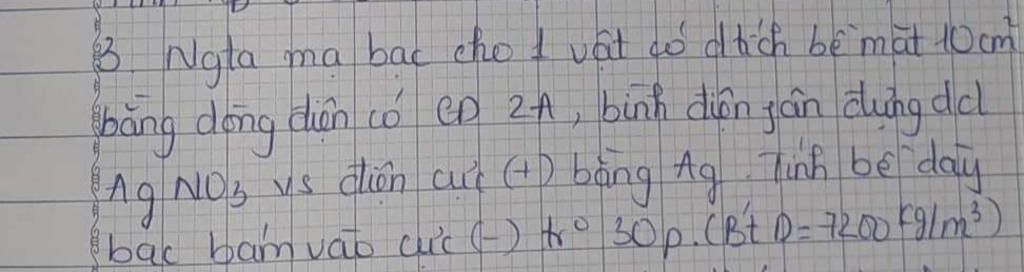 3. Ngta mạ bạc cho 1 vật có dtích bề mặt 10cm²
bằng dòng điện có CĐ 2A, bình điện phân đựng dd
AgNO3 vs điện cực (+) bằng Ag. Tính bề dày
bạc bám vào cực (-) tr° 30p. (Bít D = 7200 kg/m³)